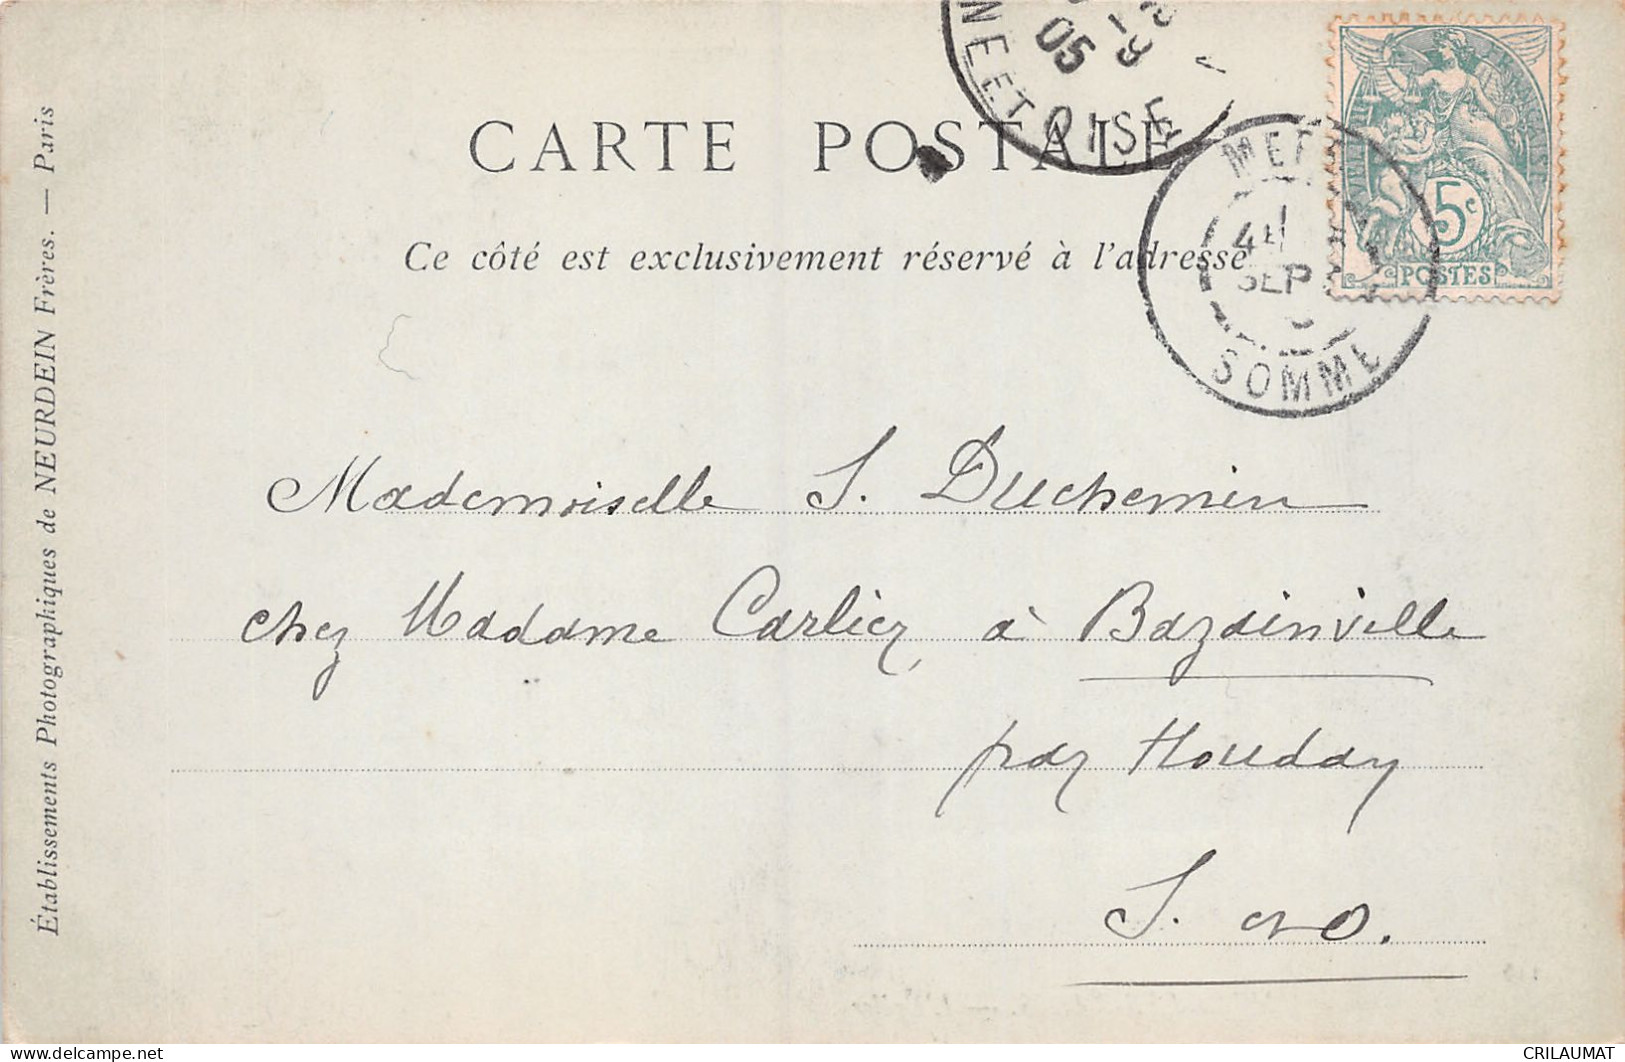 CARTE POSTALE
Ce côté est exclusivement réservé à l'adresse
NE ET OISE
05
4H
SEP
SOMME
RÉPUBLIQUE FRANÇAISE
5c
POSTES
Mademoiselle S. Duchemin
chez Madame Carlier, à Bazainville
par Houdan
S. et O.
Établissements Photographiques de NEURDEIN Frères. — Paris
CRILAUMAT